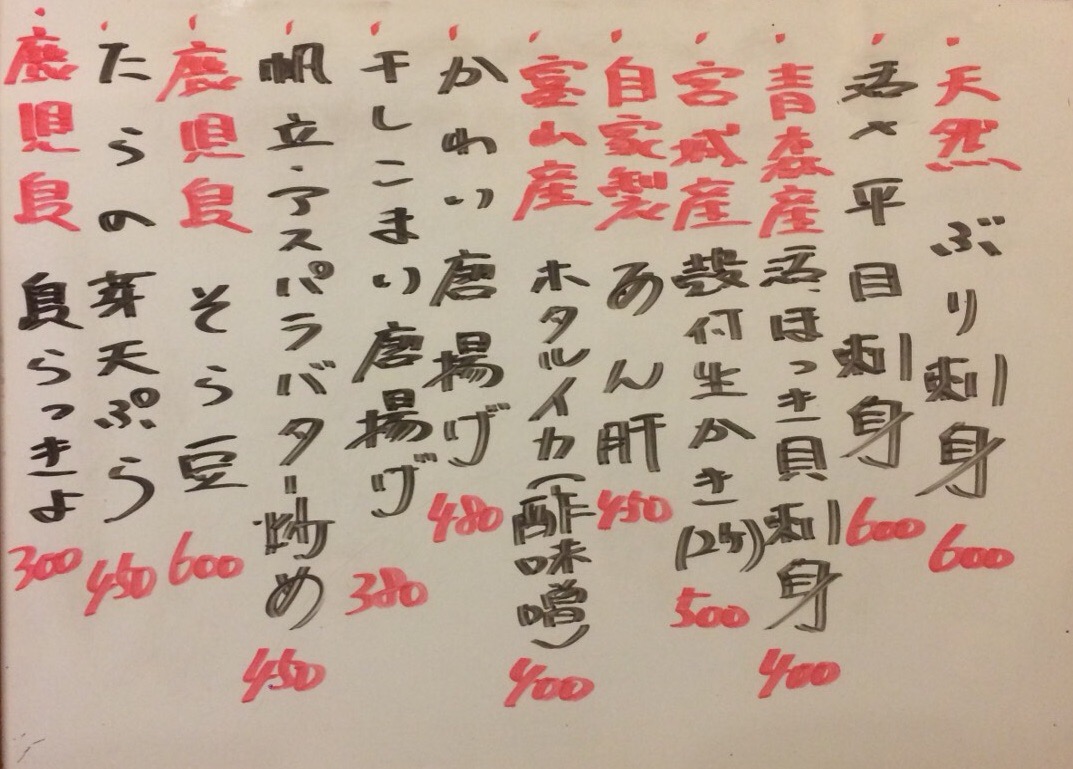 天然 ぶり刺身 600
活〆平目刺身 600
青森産 活ほっき貝刺身 400
宮城産 殻付生かき(2ケ) 500
自家製 あん肝 450
富山産 ホタルイカ(酢味噌) 400
かれい唐揚げ 480
干しこまい唐揚げ 380
帆立・アスパラバター炒め 450
鹿児島 そら豆 600
たらの芽天ぷら 450
鹿児島 島らっきょ 300